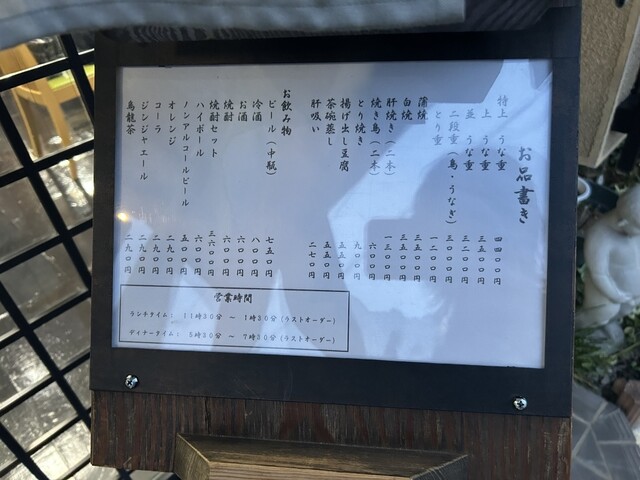 お品書き
特上 うな重 四四〇〇円
上 うな重 三五〇〇円
並 うな重 二三〇〇円
二段重(鳥・うなぎ) 三〇〇〇円
とり重 一二〇〇円
蒲焼 三五〇〇円
白焼 三五〇〇円
肝焼き(二本) 一三〇〇円
焼き鳥(二本) 六〇〇円
とり焼き 九〇〇円
揚げ出し豆腐 五五〇円
茶碗蒸し 五五〇円
肝吸い 二七〇円
お飲み物
ビール(中瓶) 七五〇円
冷酒 八〇〇円
お酒 六〇〇円
焼酎 六〇〇円
焼酎セット 三六〇〇円
ハイボール 六〇〇円
ノンアルコールビール 五〇〇円
オレンジ 二九〇円
コーラ 二九〇円
ジンジャエール 二九〇円
烏龍茶 二九〇円
営業時間
ランチタイム: 11時30分 ~ 1時30分(ラストオーダー)
ディナータイム: 5時30分 ~ 7時30分(ラストオーダー)